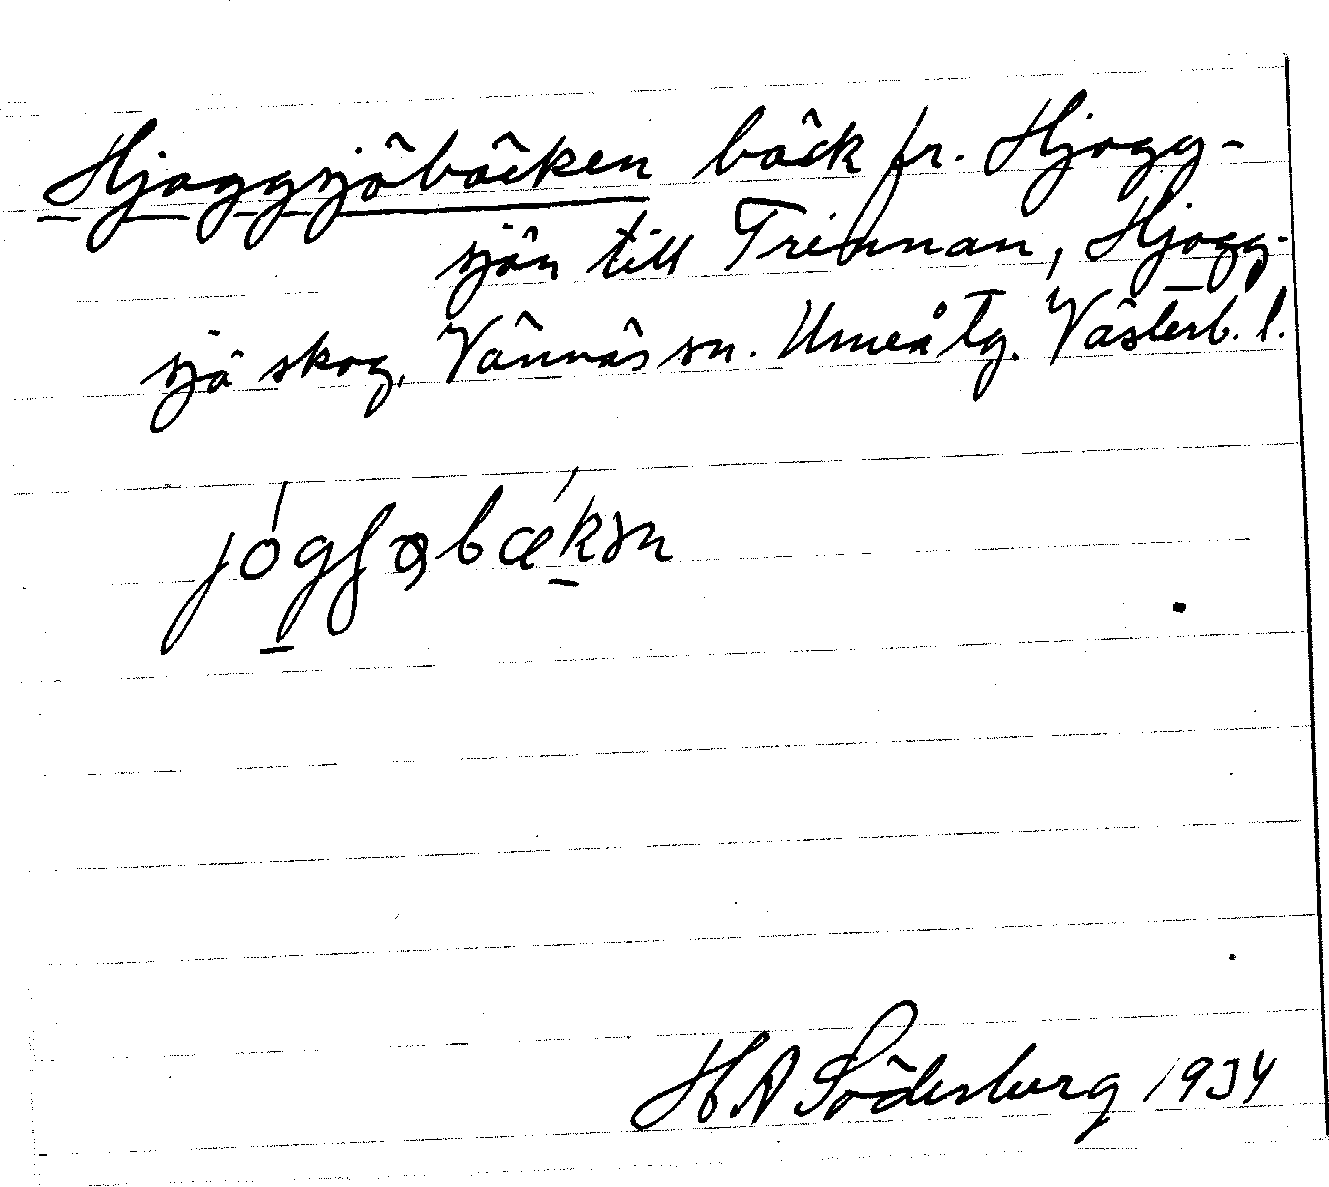 Hjoggsjöbäcken bäck fr. Hjogg-
sjön till Trinnan, Hjogg-
sjö skog, Vännäs sn. Umeå tg. Västerb. l.
H A Söderberg 1934